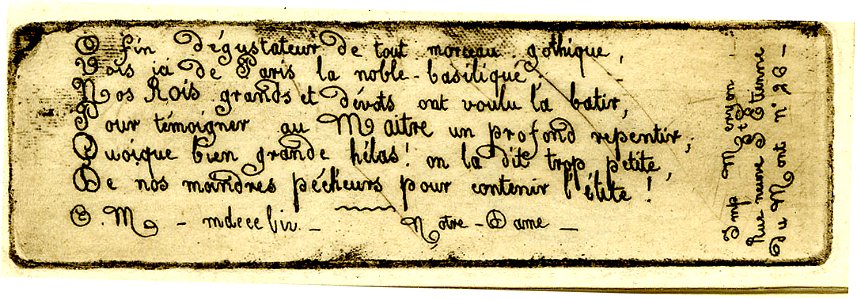 O fin dégustateur de tout morceau gothique,
Vois ici de Paris la noble-basilique
Nos Rois grands et dévots ont voulu la batir,
Pour témoigner au Maitre un profond repentir;
Quoique bien grande hélas! on la dit trop petite,
De nos moindres péckeurs pour contenir l'élite!
C. M - mdcccliv - Notre-Dame -
Imp Meryon -
Rue neuve St Etienne
du Mont n° 26 -